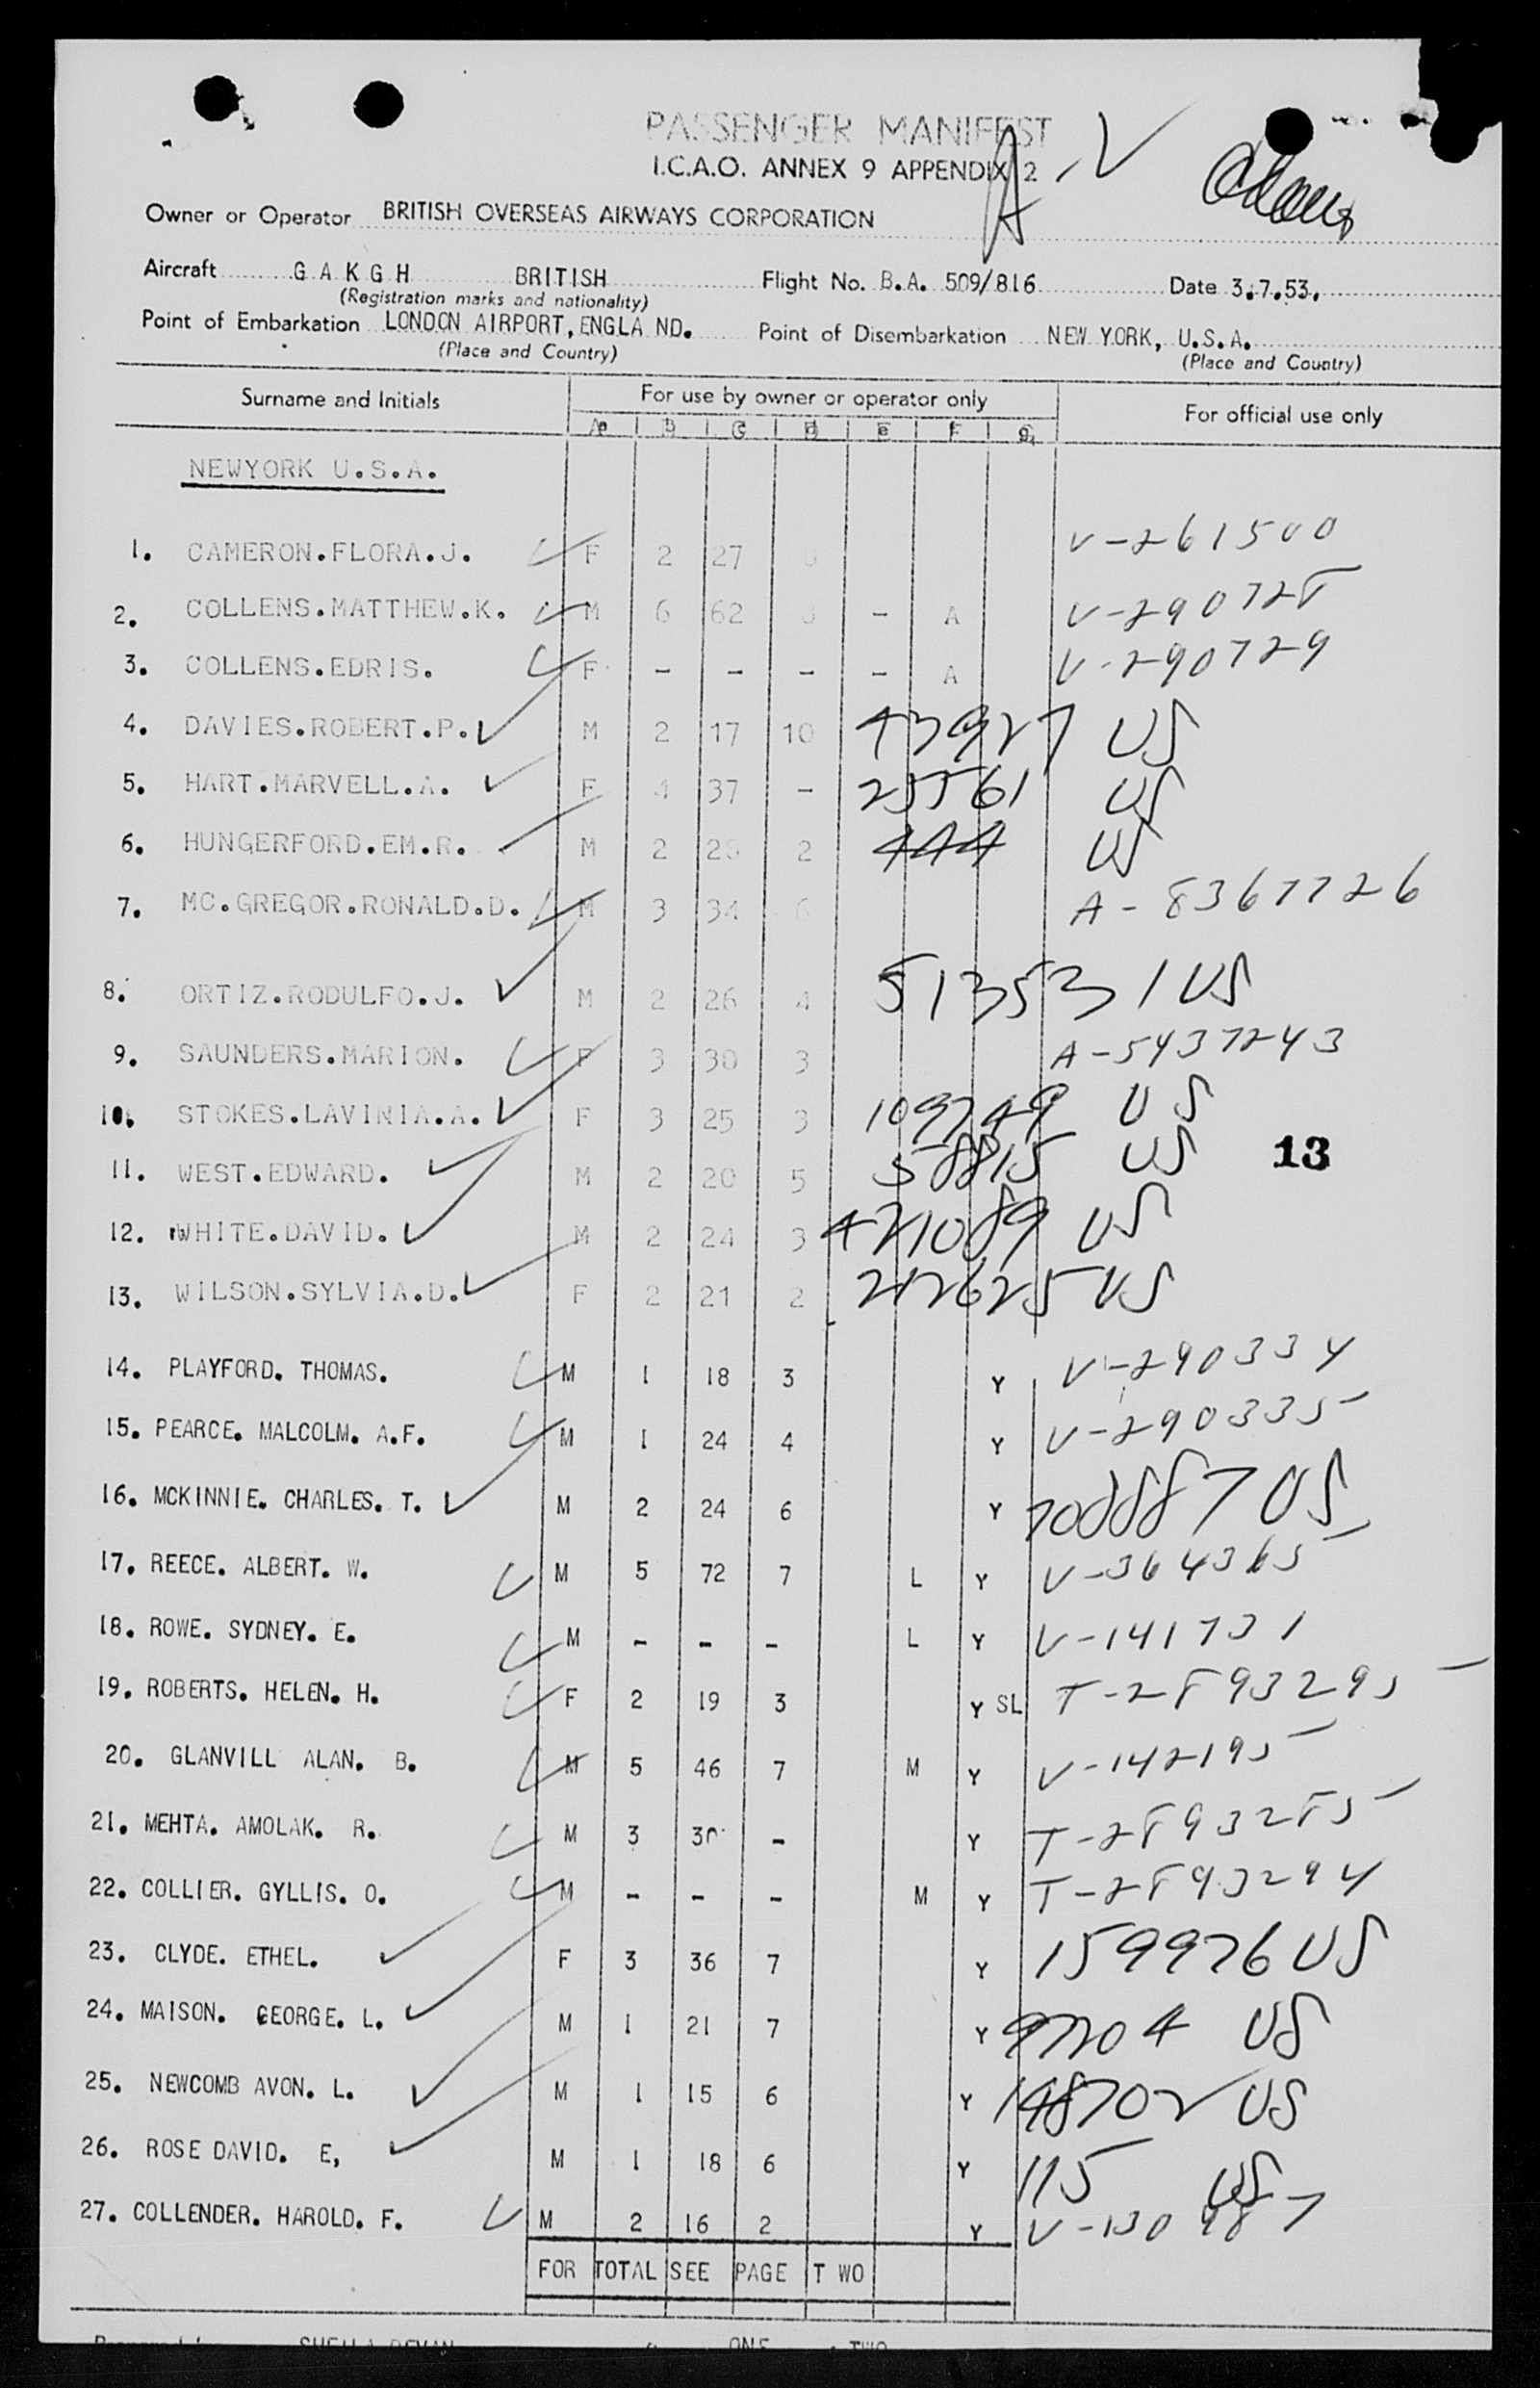 PASSENGER MANIFEST
I.C.A.O. ANNEX 9 APPENDIX 2
Owner or Operator BRITISH OVERSEAS AIRWAYS CORPORATION
Aircraft G A K G H BRITISH Flight No. B.A. 509/816 Date 3.7.53.
(Registration marks and nationality)
Point of Embarkation LONDON AIRPORT, ENGLA ND. Point of Disembarkation NEW YORK, U.S.A.
(Place and Country) (Place and Country)
Surname and Initials For use by owner or operator only For official use only
NEWYORK U.S.A.
1. CAMERON.FLORA.J. F 2 27 V-261500
2. COLLENS.MATTHEW.K. M 6 62 - A V-290728
3. COLLENS.EDRIS. F - - - - A V-290729
4. DAVIES.ROBERT.P. M 2 17 10 43927 US
5. HART.MARVELL.A. F 4 37 - 255561 US
6. HUNGERFORD.EM.R. M 2 2 444 US
7. MC.GREGOR.RONALD.D. M 3 34 6 A-8367726
8. ORTIZ.RODULFO.J. M 2 26 4 513531 US
9. SAUNDERS.MARION. F 3 30 3 A-5437243
10. STOKES.LAVINIA.A. F 3 25 3 109749 US
11. WEST.EDWARD. M 2 20 5 58815 US
13
12. WHITE.DAVID. M 2 24 3 421089 US
13. WILSON.SYLVIA.D. F 2 21 2 212625 US
14. PLAYFORD. THOMAS. M 1 18 3 Y V-290334
15. PEARCE. MALCOLM. A.F. M 1 24 4 Y V-290335
16. MCKINNIE. CHARLES. T. M 2 24 6 Y 708887 US
17. REECE. ALBERT. W. M 5 72 7 L Y V-364365
18. ROWE. SYDNEY. E. M - - - L Y V-141731
19. ROBERTS. HELEN. H. F 2 19 3 Y SL T-2893295
20. GLANVILL ALAN. B. M 5 46 7 M Y V-142195
21. MEHTA. AMOLAK. R. M 3 30 - Y T-2893285
22. COLLIER. GYLLIS. O. M - - - M Y T-2893294
23. CLYDE. ETHEL. F 3 36 7 Y 159976 US
24. MAISON. GEORGE. L. M 1 21 7 Y 97704 US
25. NEWCOMB AVON. L. M 1 15 6 Y 148702 US
26. ROSE DAVID. E, M 1 18 6 Y 115 US
27. COLLENDER. HAROLD. F. M 2 16 2 Y V-130987
FOR TOTAL SEE PAGE T WO